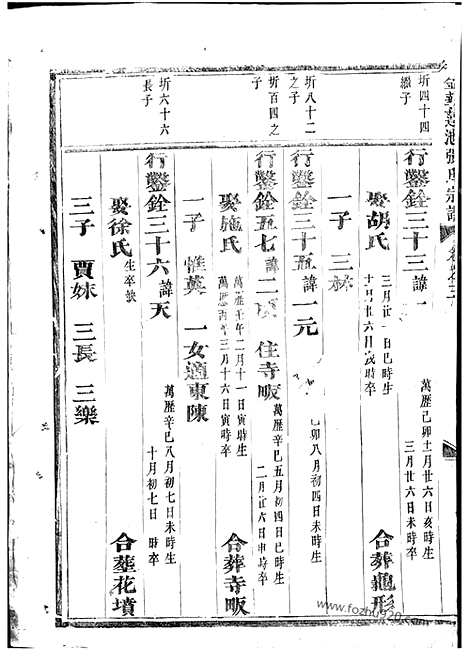 張氏宗譜 卷之三
圻四十四
繼子
行鑿銓三十三諱一
萬歷己卯十二月廿六日亥時生
三月廿六日未時卒
娶胡氏
三月廿一日巳時生
十月廿六日戌時卒
合葬龜形
一子 三
圻八十二
之子
行鑿銓三十五諱一元
己卯八月初四日未時生
圻百四之
子
行鑿銓五七諱二 住寺畈
萬歷辛巳五月初四日巳時生
二月廿六日申時卒
娶施氏
萬歷壬午二月十一日寅時生
萬歷 三月十六日寅時卒
合葬寺畈
一子 惟英 一女適東陳
圻六十六
長子
行鑿銓三十六諱天
萬歷辛巳八月初七日未時生
十月初七日 時卒
娶徐氏生卒缺
合塟花墳
三子 賈妹 三長 三樂
www.fozhu920.com